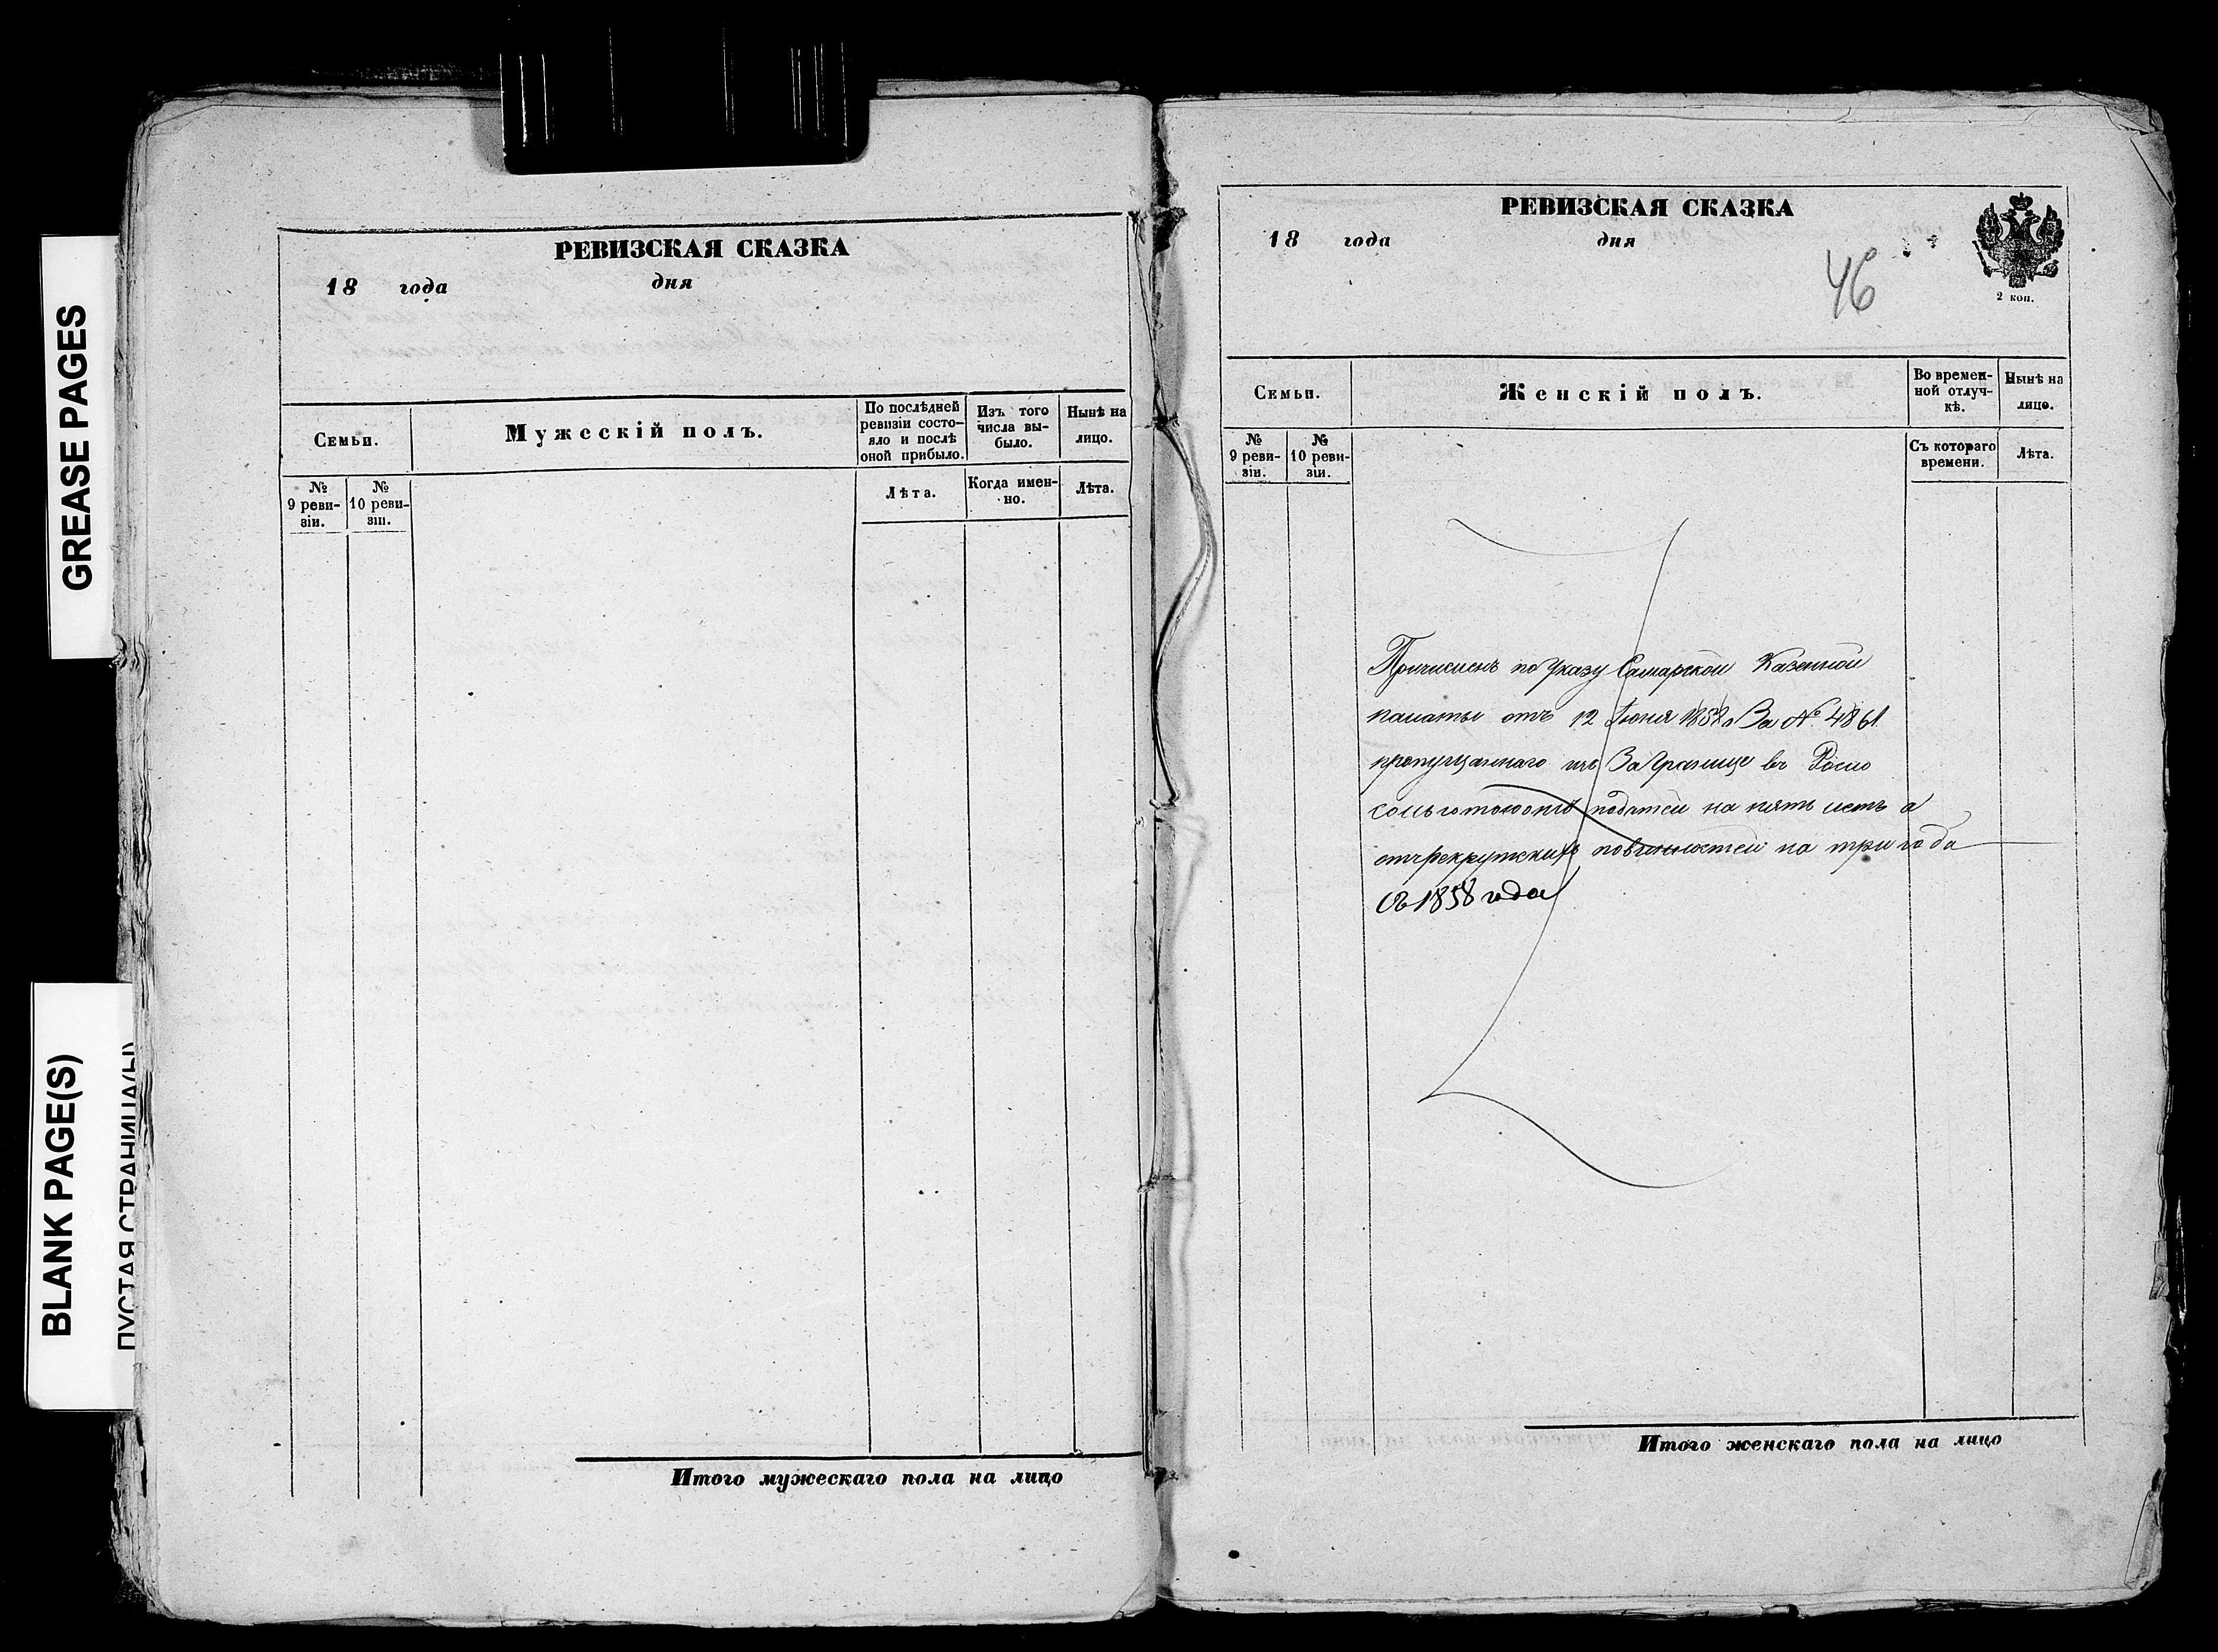 GREASE PAGES
BLANK PAGE(S)
ПУСТАЯ СТРАНИЦА(Ы)
РЕВИЗСКАЯ СКАЗКА
18 года дня
Семьи.
Мужескій полъ.
По послѣдней
ревизіи состо-
яло и послѣ
оной прибыло.
Изъ того
числа вы-
было.
Нынѣ на
лицо.
№
9 реви-
зіи.
№
10 реви-
зіи.
Лѣта.
Когда имен-
но.
Лѣта.
Итого мужескаго пола на лицо
РЕВИЗСКАЯ СКАЗКА
18 года дня
46
2 коп.
Семьи.
Женскій полъ.
Во времен-
ной отлуч-
кѣ.
Нынѣ на
лицо.
№
9 реви-
зіи.
№
10 реви-
зіи.
Съ котораго
времени.
Лѣта.
Причисленъ по Указу Самарской Казенной
палаты отъ 12 Іюня 1858 За №. 4861
пропущаннаго изъ За Границе въ
податей на пять летъ а
отърекрутскихъ повинностей на три года
Съ 1858 года
Итого женскаго пола на лицо